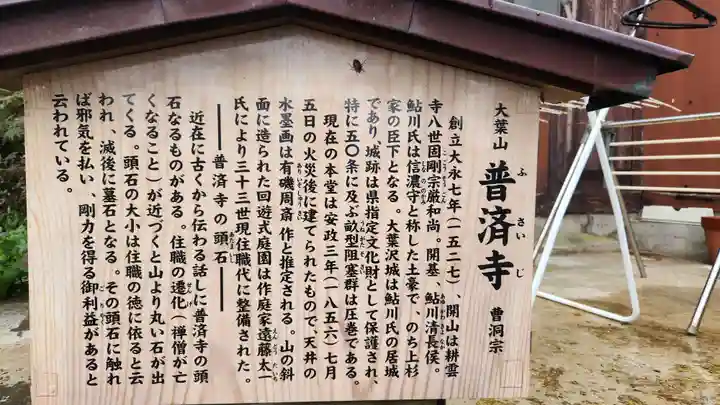 大葉山 普済寺 曹洞宗
ふ さい じ
創立大永七年（一五二七）、開山は耕雲
寺八世固剛宗厳和尚。開基、鮎川清長侯。
鮎川氏は信濃守と称した土豪で、のち上杉
家の臣下となる。大葉沢城は鮎川氏の居城
であり、城跡は県指定文化財として保護され、
特に五〇条に及ぶ畝型阻塞群は圧巻である。
現在の本堂は安政三年（一八五六）七月
五日の火災後に建てられたもので、天井の
水墨画は有磯周斎 作と推定される。山の斜
面に造られた回遊式庭園は作庭家遠藤太一
氏により三十三世現住職代に整備された。
――― 普済寺の頭石 ―――
近在に古くから伝わる話しに普済寺の頭
石なるものがある。住職の遷化（禅僧が亡
くなること）が近づくと山より丸い石が出
てくる。頭石の大小は住職の徳に依ると云
われ、滅後に墓石となる。その頭石に触れ
ば邪気を払い、剛力を得る御利益があると
云われている。